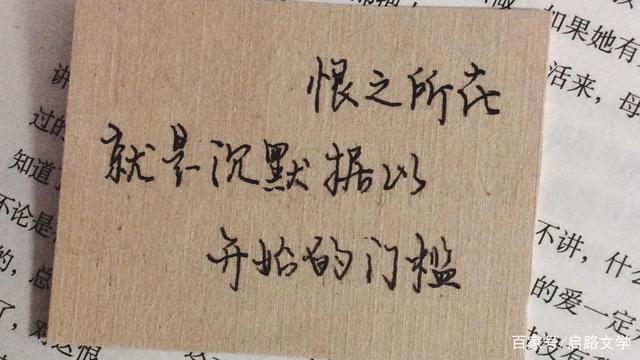 恨之所在
就是沉默据以
开始的门槛
如果她有
活来，母
讲
过的
知道
不论是
的，总
了，对这恨
不讲，什么
的爱一定
百家号/启路文学